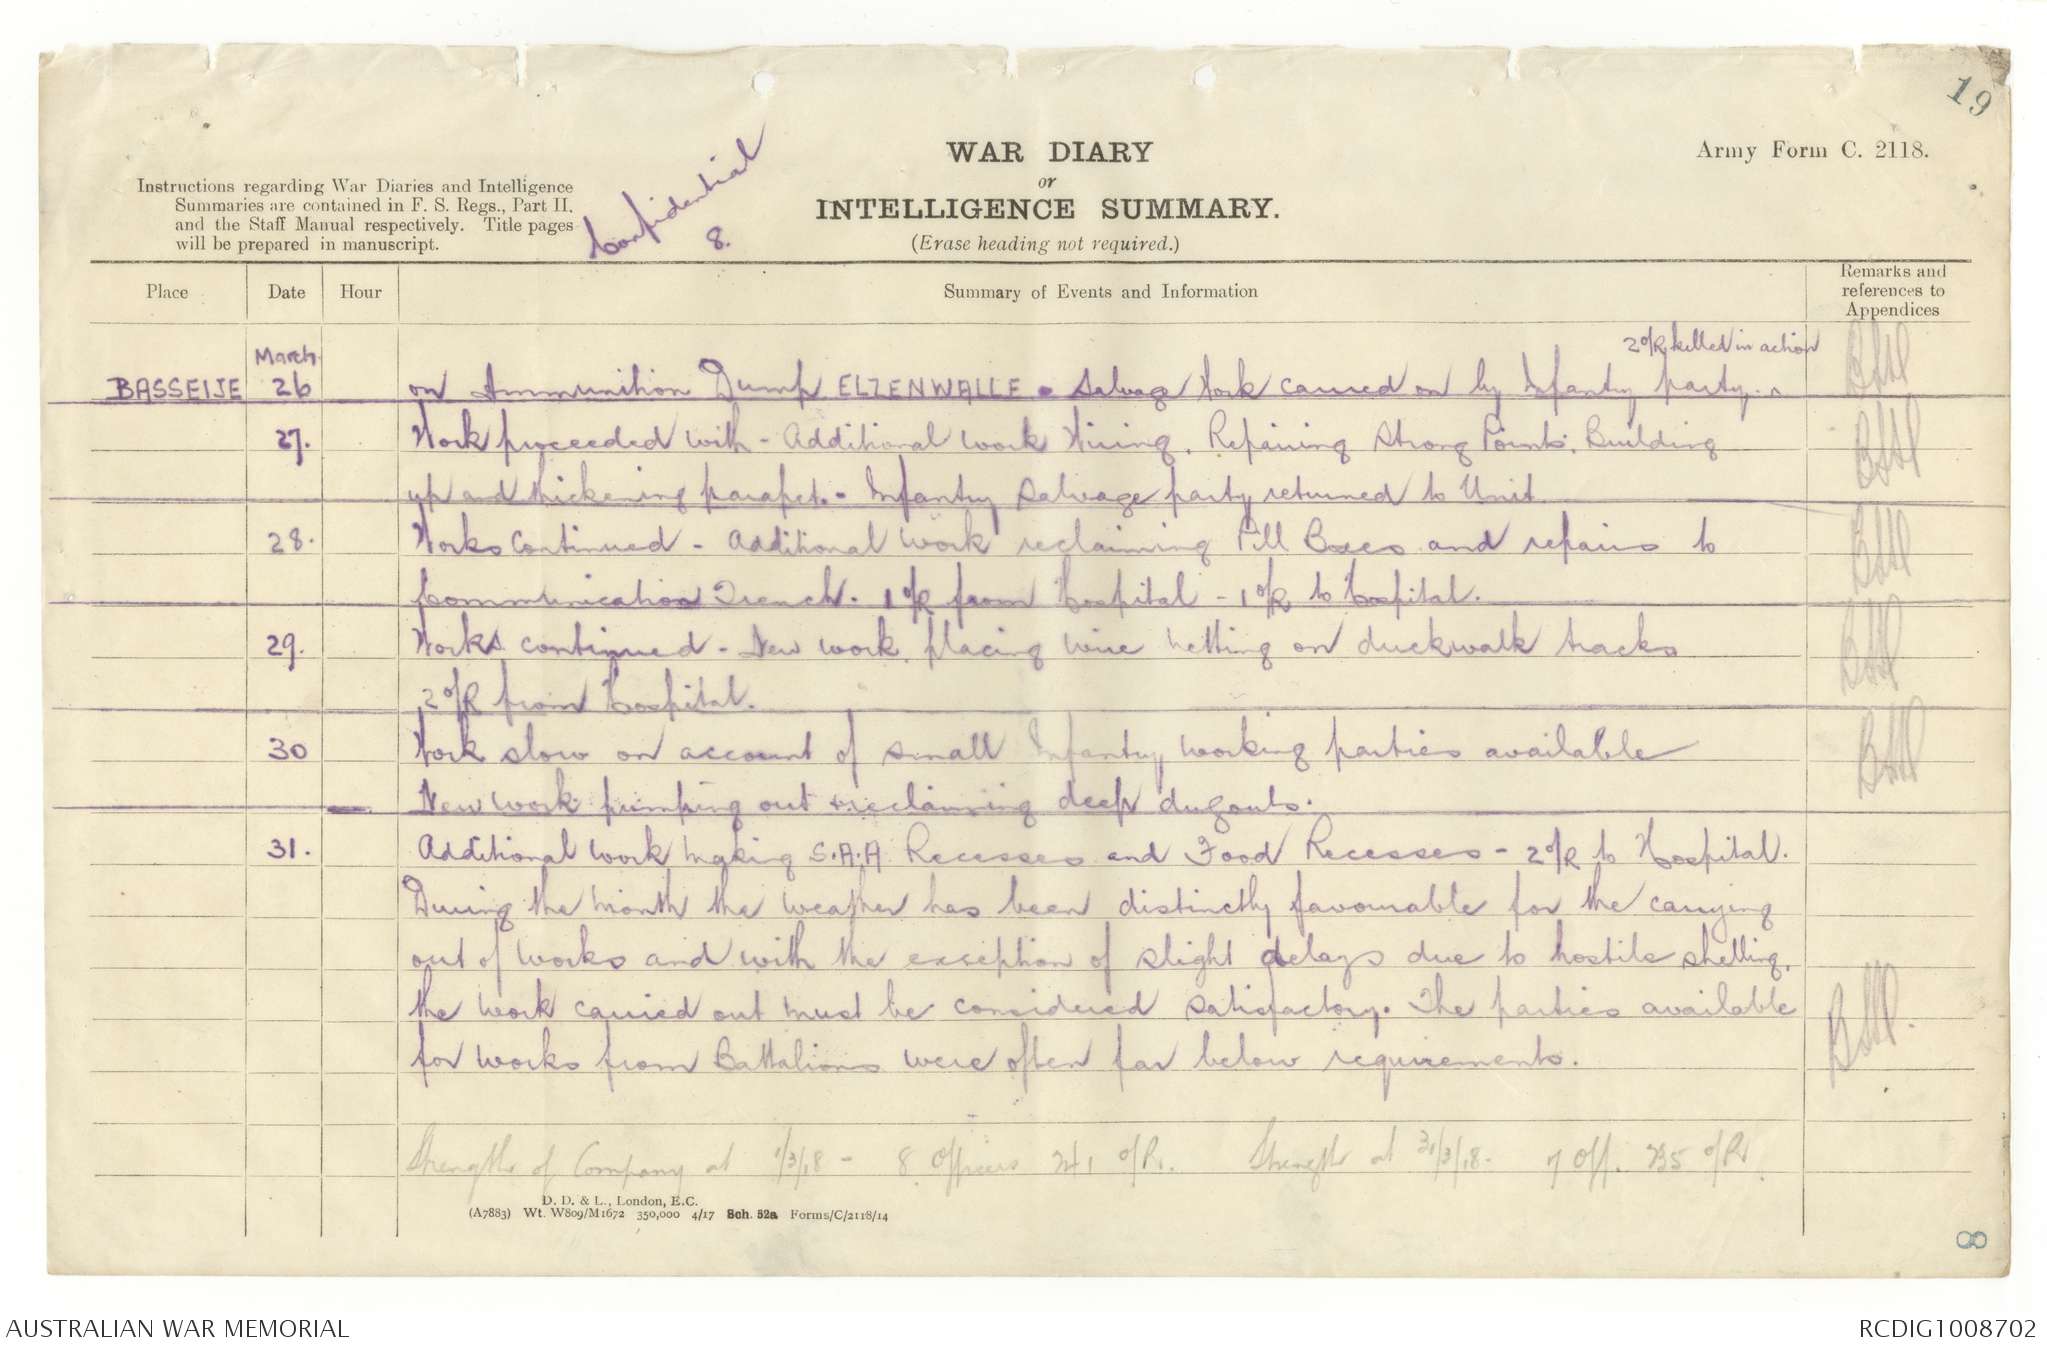 19
WAR DIARY
or
INTELLIGENCE SUMMARY.
(Erase heading not required.)
Army Form C. 2118.
Instructions regarding War Diaries and Intelligence
Summaries are contained in F. S. Regs., Part II.
and the Staff Manual respectively. Title pages
will be prepared in manuscript.
Confidential
8.
Place Date Hour Summary of Events and Information Remarks and
references to
Appendices
2 O/R killed in action
March
BASSEIJE 26 on Ammunition Dump ELZENWALLE. Salvage Work carried on by Infantry party.
27. Work proceeded with - Additional work Wiring, Repairing Strong Points, Building
up and thickening parapet. - Infantry Salvage party returned to Unit
28. Works Continued - Additional work reclaiming Pill Boxes and repairs to
Communication Trench. 1 O/R from Hospital - 1 O/R to Hospital.
29. Works continued - New work, placing wire netting on duckwalk tracks
2 O/R from Hospital.
30 Work slow on account of small Infantry working parties available
New work pumping out & reclaiming deep dugouts.
31. Additional work making S.A.A Recesses and Food Recesses - 2 O/R to Hospital.
During the month the weather has been distinctly favourable for the carrying
out of works and with the exception of slight delays due to hostile shelling,
the work carried out must be considered satisfactory. The parties available
for works from Battalions were often far below requirements.
Strength of Company at 1/3/18 - 8 Officers O/R. Strength at 31/3/18 - 7 Off. O/R.
D. D. & L., London, E.C.
(A7883) Wt. W809/M1672 350,000 4/17 Sch. 52a Forms/C/2118/14
8
AUSTRALIAN WAR MEMORIAL
RCDIG1008702